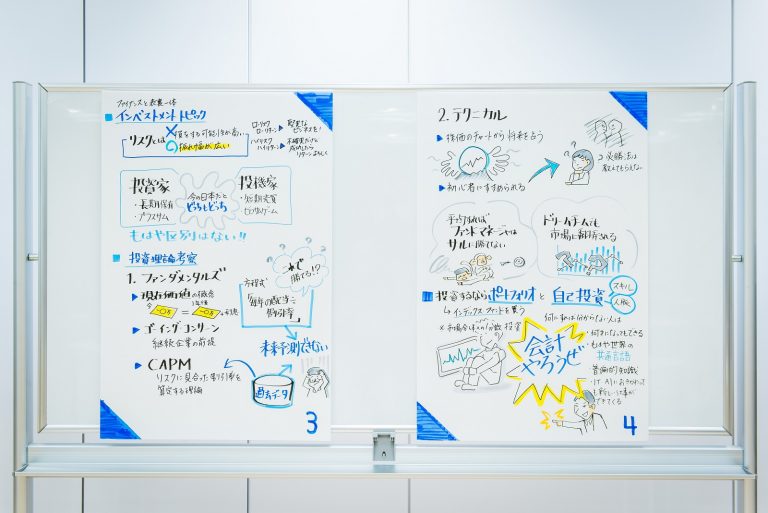 ファイナンスと表裏一体
インベストメントトピック
リスクとは
損をする可能性が高い
振れ幅が広い
ローリスク
ローリターン
堅実な
ビジネスを!
ハイリスク
ハイリターン
不確実だけど
成功したら
リターン
投資家
・長期保有
・プラスサム
今の日本だと
どっちもどっち
投機家
・短期売買
・ゼロサムゲーム
もはや区別はない!!
投資理論考察
1. ファンダメンタルズ
現在価値の概念
今
1年後
ゴーイングコンサーン
継続企業の前提
CAPM
リスクに見合った割引率を
算定する理論
これで
勝てる!?
方程式
毎年の配当÷
割引率
未来予測できない
過去データ
3
2. テクニカル
株価のチャートから将来を占う
初心者にすすめられる
必勝法は
教えてもらえない
手数料すれば
ファンドマネージャーは
サルに勝てない
ドリームチームでも
市場に翻弄される
投資するならポートフォリオと自己投資
スキル
人脈
インデックスファンドを買う
何にすれば分からない人は
会計
やろうぜ
・何才になってもできる
・もはや世界の
共通言語
・普遍的知識
・IT、AIにおきかわって
も新しい仕事が
できてくる
4